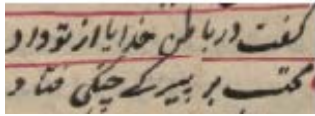 گفت در باطن خدایا از تو داد
محتسب بر پیرکے چنگی فتاد